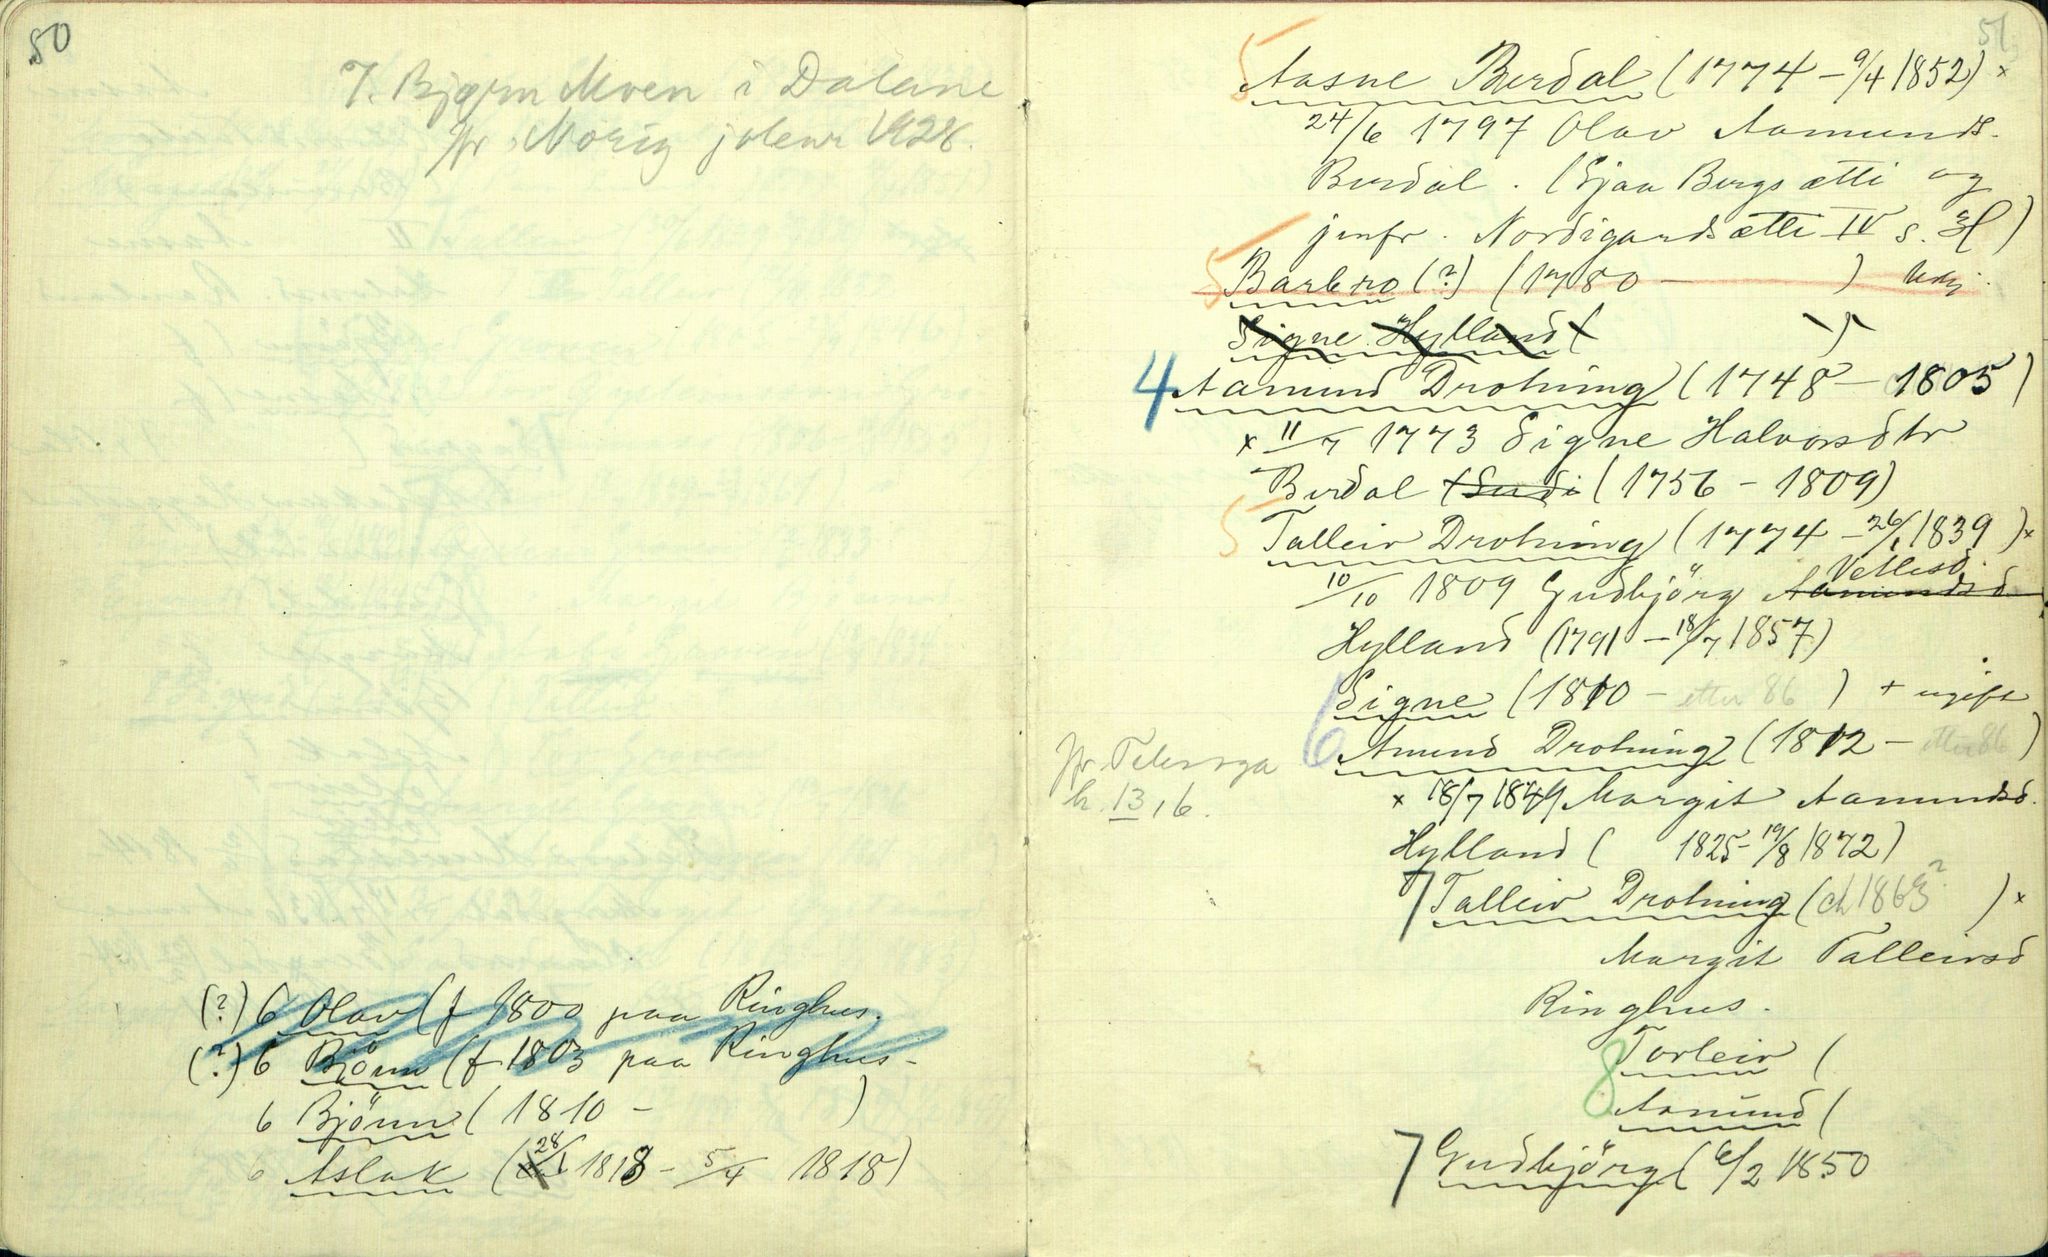 50
7. Bjørn Moen i Dalane
jfr. Norig jolenr 1928.
(?) 6 Olav (f 1800 paa Ringhus.
(?) 6 Björn (f 1803 paa Ringhus -
6 Björn ( 1810 - )
6 Aslak ( 28/1 1818 - 5/4 1818)
51
5 Aasne Berdal (1774 - 9/4 1852) ×
24/6 1797 Olav Aamunds.
Berdal . (Sjaa Bergsætti og
jmfr. Nordigardsætti IV s. )
5 Barbro (?) (1780 - )
Signe Hylland ( )
4 Aamund Drotning (1748 - 1805)
× 11/7 1773 Signe Halvorsdtr
Berdal (1756 - 1809)
5 Talleiv Drotning (1774 - 26/1 1839) ×
Vetlesd.
10/10 1809 Gudbjörg Aamundsd
Hylland (1791 - 18/7 1857)
Signe (1810 - etter 86 ) + ugift
6 Amund Drotning (1812 - etter 86 )
jfr. Telesoga
h. 13, 6.
× 18/7 1849 Margit Aamundsd.
Hylland ( 1825 - 19/8 1872)
7 Talleiv Drotning ( 1863? ) ×
Margit Talleivsd
Ringhus.
8 Torleiv (
8 Aamund (
7 Gudbjörg ( 6/2 1850